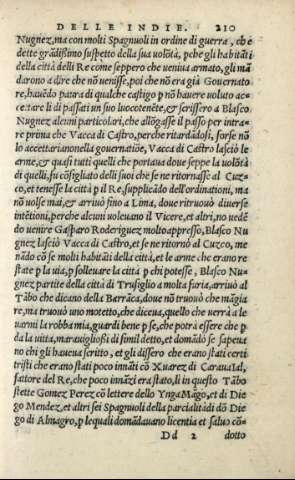 DELLE INDIE. 210
Nugnez, ma con molti Spagnuoli in ordine di guerra, che
dette grãdißimo suspetto della sua volõtà, pche gli habitãti
della città delli Re come seppero che veniua armato, gli mã
darono a dire che nõ uenisse, poi che nõ era già Gouernato
re, hauẽdo paura di qualche castigo p nõ hauere voluto ac=
cettare li dì passati un suo luocotenẽte, & scrissero a Blasco
Nugnez alcuni particolari, che allõgasse il passo per intra=
re prima che Vacca di Castro, perche ritardãdosi, forse nõ
lo accettarianonella gouernatiõe, Vacca di Castro lasciò le
arme, & quasi tutti quelli che portaua doue seppe la uolõtà
di quelli, fu cõsigliato delli suoi che se ne ritornasse al Cuz=
co, et tenesse la città p il Re, supplicãdo dell'ordinationi, ma
nõ uolse mai, & arriuò fino a Lima, doue ritruouò diuerse
intẽtioni, perche alcuni uoleuano il Vicere, et altri, no uedẽ
do uenire Gasparo Roderiguez molto appresso, Blasco Nu
gnez lasciò Vacca di Castro, et se ne ritornò al Cuzco, me
nãdo cõ se molti habitãti della città, et le arme che erano re
state p la uia, p solleuare la città p chi potesse, Blasco Nu=
gnez partite della città di Trusiglio a molta furia, arriuò al
Tãbo che dicano della Barrãca, doue nõ truouò che mãgia
re, ma truouò uno motetto, che diceua, quello che uerrà a le
uarmi la robba mia, guardi bene p se, che potrà essere che p
da la uitta, marauiglioßi di simil detto, et domãdò se sapeua
no chi gli haueua scritto, et gli dissero che erano stati certi
tristi che erano stati poco innãti cõ Xuarez di Carauaial,
fattore del Re, che poco innãzi era stato, li in questo Tãbo
stette Gomez Perez cõ lettere dello Ynga Mãgo, et di Die
go Mendez, et altri sei Spagnuoli della partialità di dõ Die
go di Almagro, p lequali domãdauano licentia et saluo cõ=
Dd 2 dotto